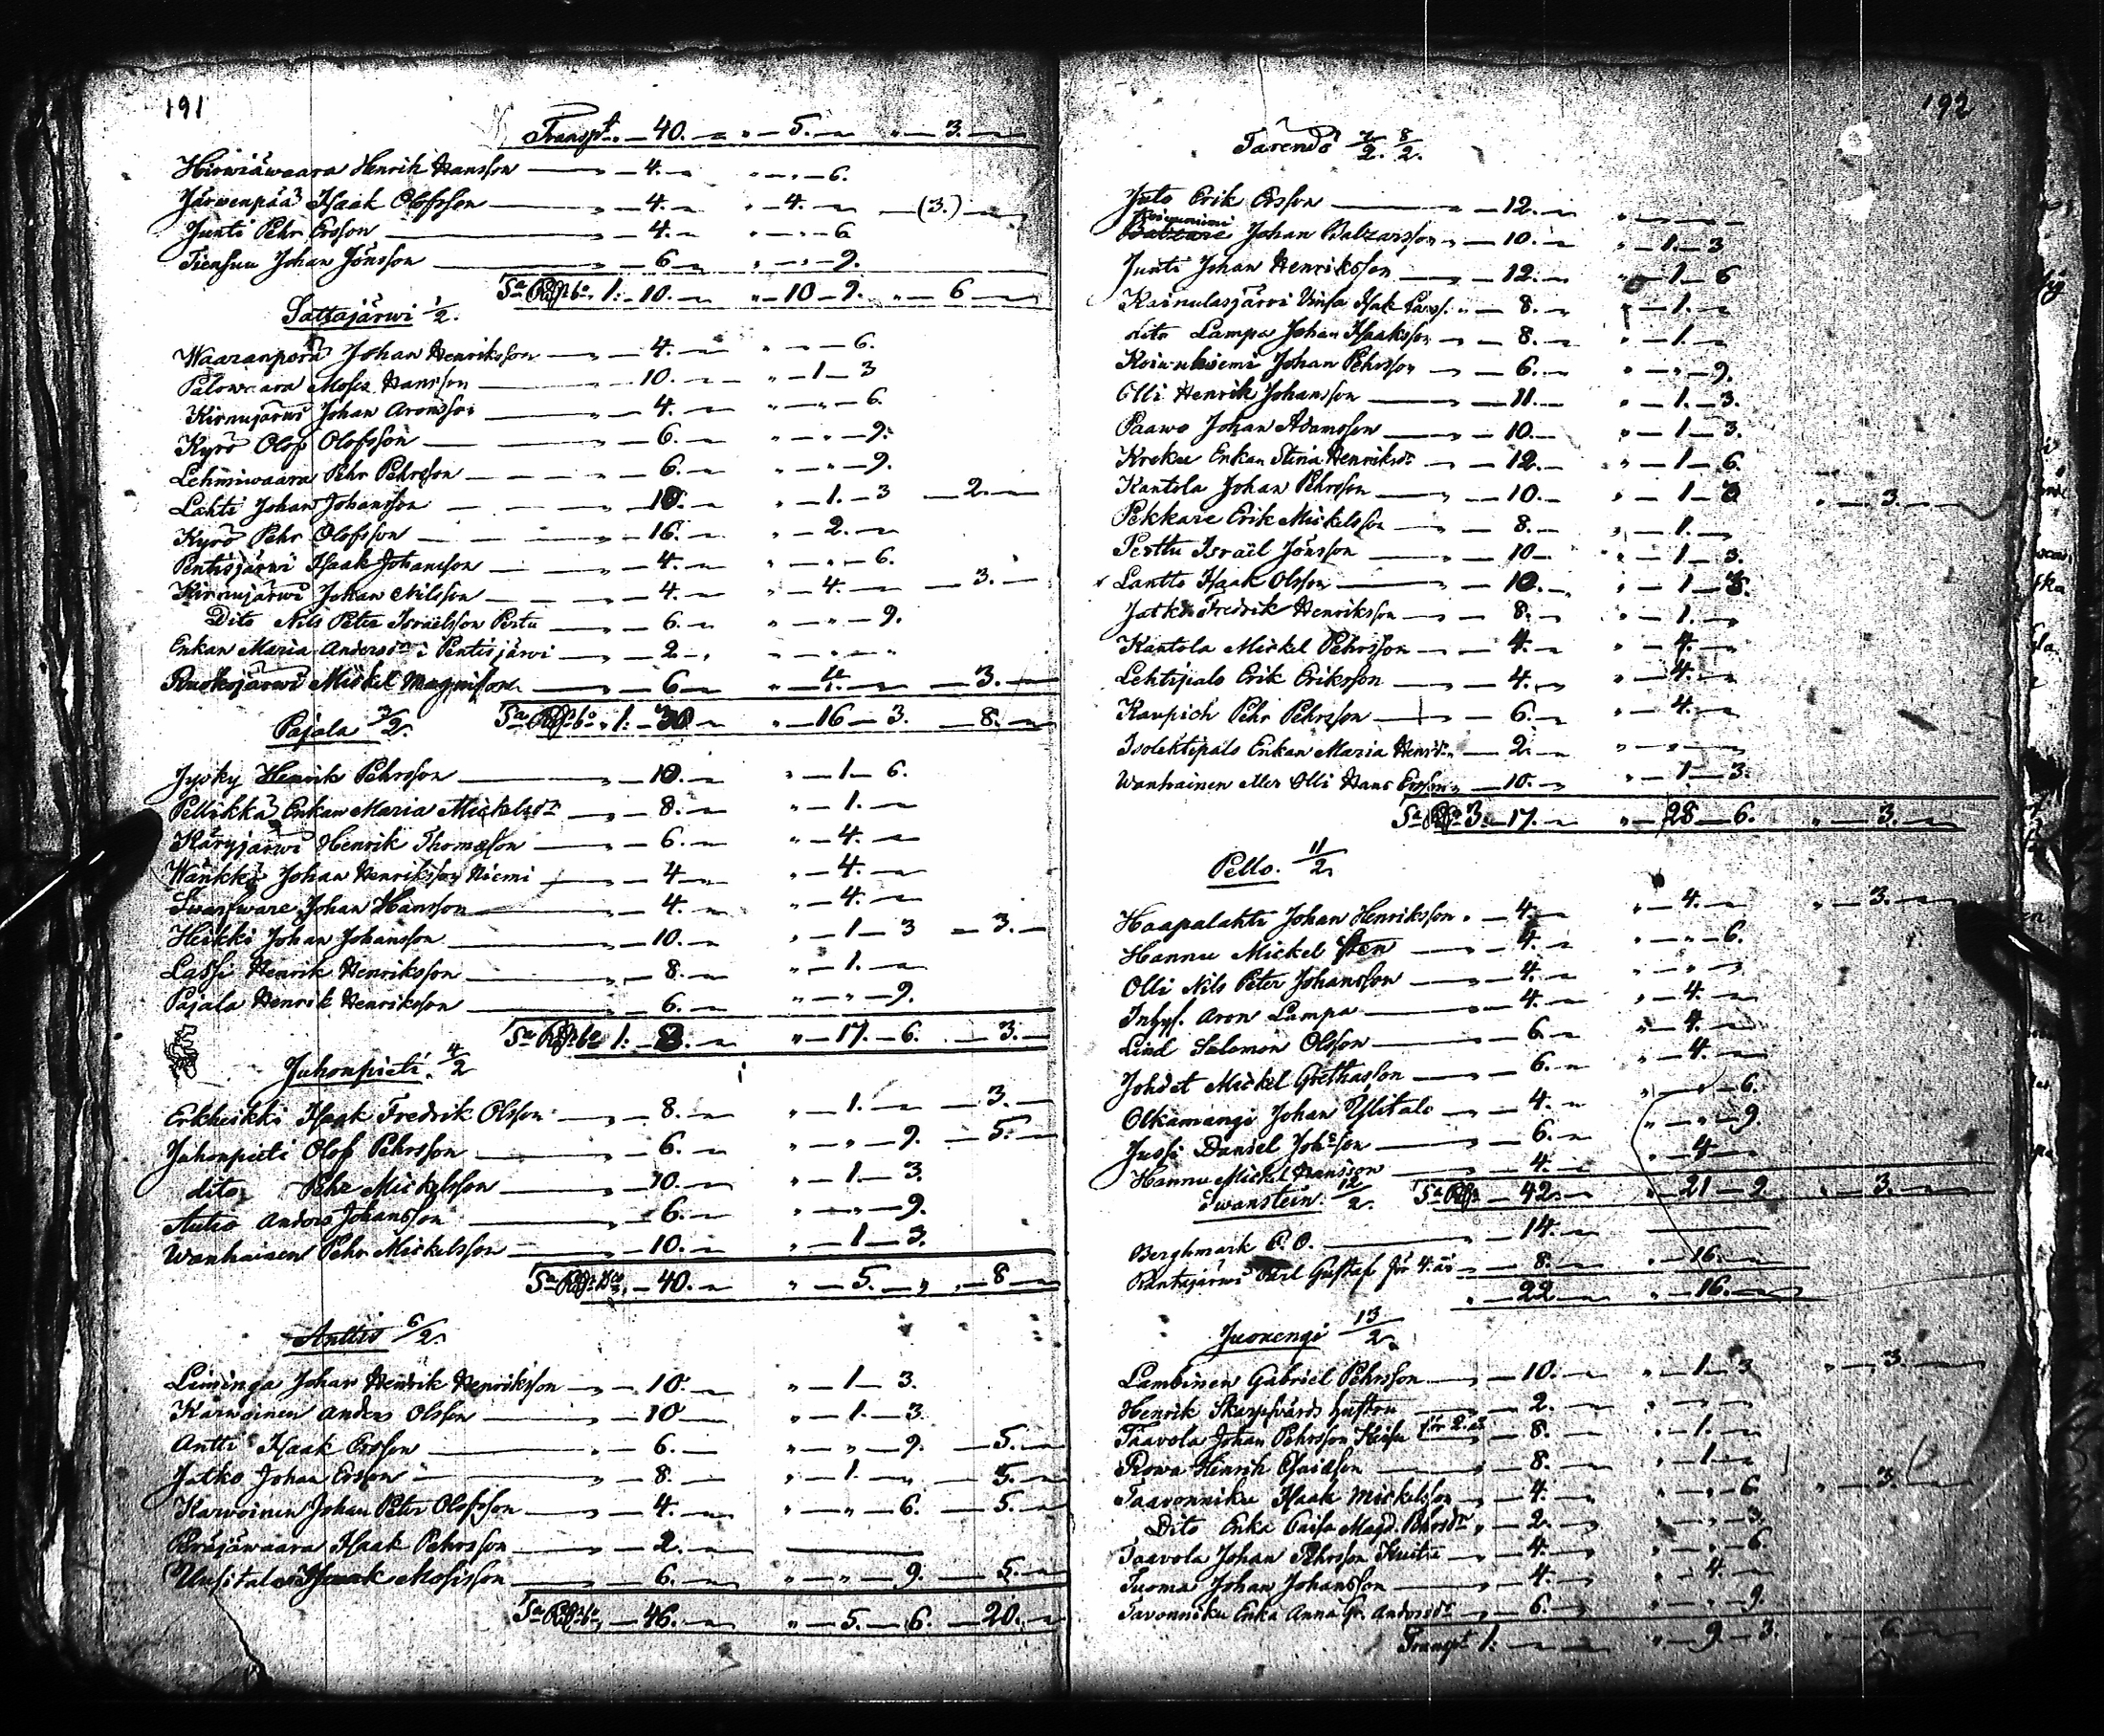 191
Transpt. — 40. — " — 5. — " — 3. —
Hirwiäwaara Henrik Hansson — " — 4. — " — " — 6.
Järwenpää Isaak Olofsson — " — 4. — " — 4. — — (3.) —
Junti Pehr Ersson — " — 4. — " — " — 6
Tiensuu Johan Jönsson — " — 6 — " — " — 9.
Sa Rdr bo 1: — 10. — " — 10 — 9. " — 6 —
Sattajärwi 1/2.
Waaranperä Johan Henriksson — " — 4. — " — " — 6.
Palowaara Moses Hansson — " — 10. — " — 1 — 3
Kirnujärwi Johan Aronsson — " — 4. — " — " — 6.
Kyrö Olof Olofsson — " — 6. — " — " — 9.
Lehmiwaara Pehr Pehrsson — " — 6. — " — " — 9.
Lahti Johan Johansson — " — 10. — " — 1. — 3 — 2. —
Kyrö Pehr Olofsson — " — 16. — " — 2. —
Pentisjärwi Isaak Johansson — " — 4. — " — " — 6.
Kirnujärwi Johan Nilsson — " — 4. — " — 4. — — 3. —
Dito Nils Peter Israelsson Pertu — " — 6. — " — " — 9.
Enkan Maria Andersdr i Pentisjärwi — " — 2 — " — " — "
Ruokojärwi Mickel Magnisson — " — 6 — " — 4. — — 3. —
Pajala 3/2. Sa Rdr bo " 1: — 30 — " — 16 — 3. — 8. —
Jysky Henrik Pehrsson — " — 10. — " — 1 — 6.
Pellikkä Enkan Maria Mickelsdr — " — 8. — " — 1. —
Käryjärwi Henrik Thomasson — " — 6. — " — 4. —
Wänkkö Johan Henriksson Niemi — " — 4 — " — 4. —
Swarfware Johan Hansson — " — 4. — " — 4. —
Heikki Johan Johansson — " — 10. — " — 1 — 3 — 3. —
Lassi Henrik Henriksson — " — 8. — " — 1. —
Pajala Henrik Henriksson — " — 6. — " — " — 9.
Sa Rdr bo 1: — 8. — " — 17. — 6. — 3. —
Juhonpieti 4/2
Erkheikki Isaak Fredrik Olsson — " — 8. — " — 1. — — 3. —
Juhonpieti Olof Pehrsson — " — 6. — " — " — 9. — 5. —
dito Pehr Mickelsson — " — 10. — " — 1 — 3.
Autio Anders Johansson — " — 6. — " — " — 9.
Wanhainen Pehr Mickelsson — " — 10. — " — 1 — 3.
Sa Rdr bo — 40. — " — 5. — " — 8 —
Anttis 6/2.
Leininga Johan Henrik Henriksson — " — 10. — " — 1 — 3.
Karwoinen Anders Olsson — " — 10 — " — 1. — 3
Antti Isaak Ersson — " — 6. — " — " — 9. — 5. —
Jatko Johan Ersson — " — 8. — " — 1. — — 5. —
Karwoinen Johan Peter Olofsson — " — 4. — " — " — 6. — 5. —
Peräjäwaara Isaak Pehrsson — " — 2. — —
Uusitalo Isaak Mosisson — " — 6. — " — " — 9. — 5. —
Sa Rdr bo — 46. — " — 5. — 6. — 20. —
192
Tärendö 7/2. 8/2.
Juto Erik Ersson — " — 12. — " —
Koiwuniemi
Balzare Johan Balzarsson " — 10. — " — 1 — 3
Junti Johan Henriksson — " — 12. — " — 1 — 6
Kainulasjärvi Vinsa Isak Larss. " — 8. — " — 1. —
dito Lampa Johan Isaksson — " — 8. — " — 1. —
Koiwuniemi Johan Pehrsson — " — 6. — " — " — 9.
Olli Henrik Johansson — " — 11. — " — 1. — 3.
Paawo Johan Adamsson — " — 10. — " — 1 — 3.
Kreku Enkan Stina Henriksdr — " — 12. — " — 1 — 6.
Kantola Johan Pehrsson — " — 10. — " — 1 — 3 " — 3. —
Pekkare Erik Mickelsson — " — 8. — " — 1. —
Perttu Israël Jönsson — " — 10 — " — 1 — 3.
x Lantto Isaak Olsson — " — 10. — " — 1 — 3.
Jatko Fredrik Henriksson — " — 8. — " — 1. —
Kantola Mickel Pehrsson — " — 4. — " — 4. —
Lehtipalo Erik Eriksson — " — 4. — " — 4. —
Kaupich Pehr Pehrsson — " — 6. — " — 4. —
Isolehtipalo Enkan Maria Henrsdr — 2. — " — " — "
Wanhainen eller Olli Hans Ersson " — 10. — " — 1 — 3.
Sa Rdr 3. — 17. — " — 28 — 6. " — 3. —
Pello. 11/2.
Haapalahti Johan Henriksson " — 4. — " — 4. — " — 3. —
Hannu Mickel — " — 4. — " — " — 6.
Olli Nils Peter Johansson — " — 4. — " — " — "
Inhys. Aron Lampa — " — 4. — " — 4. —
Lind Salomon Olsson — " — 6. — " — 4. —
Johdet Mickel Grethasson — " — 6. — " — 4. —
Olkamangi Johan Ylitalo — " — 4. — " — " — 6.
Jussi Daniel Johsson — " — 6. — " — " — 9.
Hannu Mickel Hansson — 4. — " — 4 —
Swanstein. 12/2. Sa Rdr — 42. — " — 21 — 9 " — 3. —
Berghmark C. O. — " — 14. —
Rantajärwi Carl Gustaf för 4. år — 8. — " — 16. —
" — 22 — " — 16. —
Juoxengi 13/2.
Lambinen Gabriel Pehrsson — " — 10. — " — 1 — 3 " — 3. —
Henrik Skarpsvärds hustru — 2. — " — " — "
Taavola Johan Pehrsson för 2. år — 8. — " — 1. —
Rowa Henrik Esaiasson — " — 8. — " — 1. —
Taavonniku Isaak Mickelsson " — 4. — " — " — 6 " — 3. —
Dito Enka Caisa Magd. Pehrsdr " — 2. — " — " — 3.
Taavola Johan Pehrsson Kuitu — " — 4. — " — " — 6.
Tuoma Johan Johansson — " — 4. — " — 4. —
Tavonniku Enka Anna Gr. Andersdr — 6. — " — " — 9.
Transpt 1: — " — 9 — 3. " — 6. —